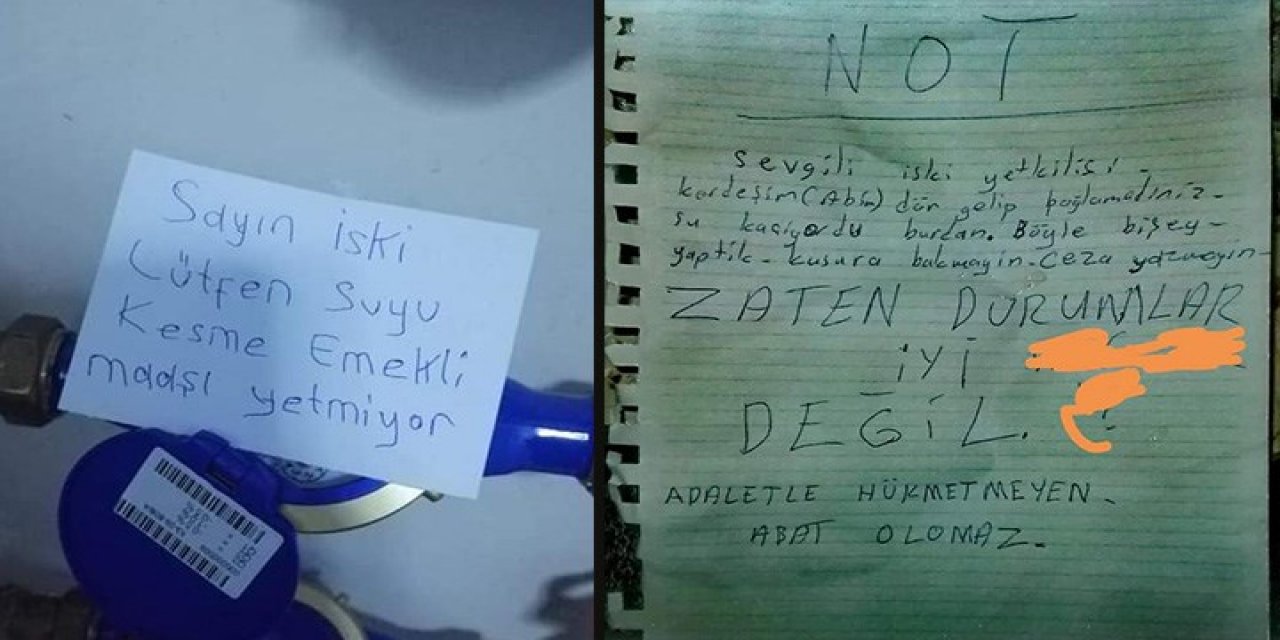 Sayın iski
Lütfen suyu
Kesme Emekli
maaşı yetmiyor
NOT
Sevgili iski yetkilisi -
kardeşim (Abim) dün gelip bağlamadınız -
su kaçıyordu burdan. Böyle bişey -
yaptik - kusura bakmayin - ceza yazmayin -
ZATEN DURUMLAR
iYi
DEĞiL.
ADALETLE HÜKMETMEYEN -
ABAT OLOMAZ -